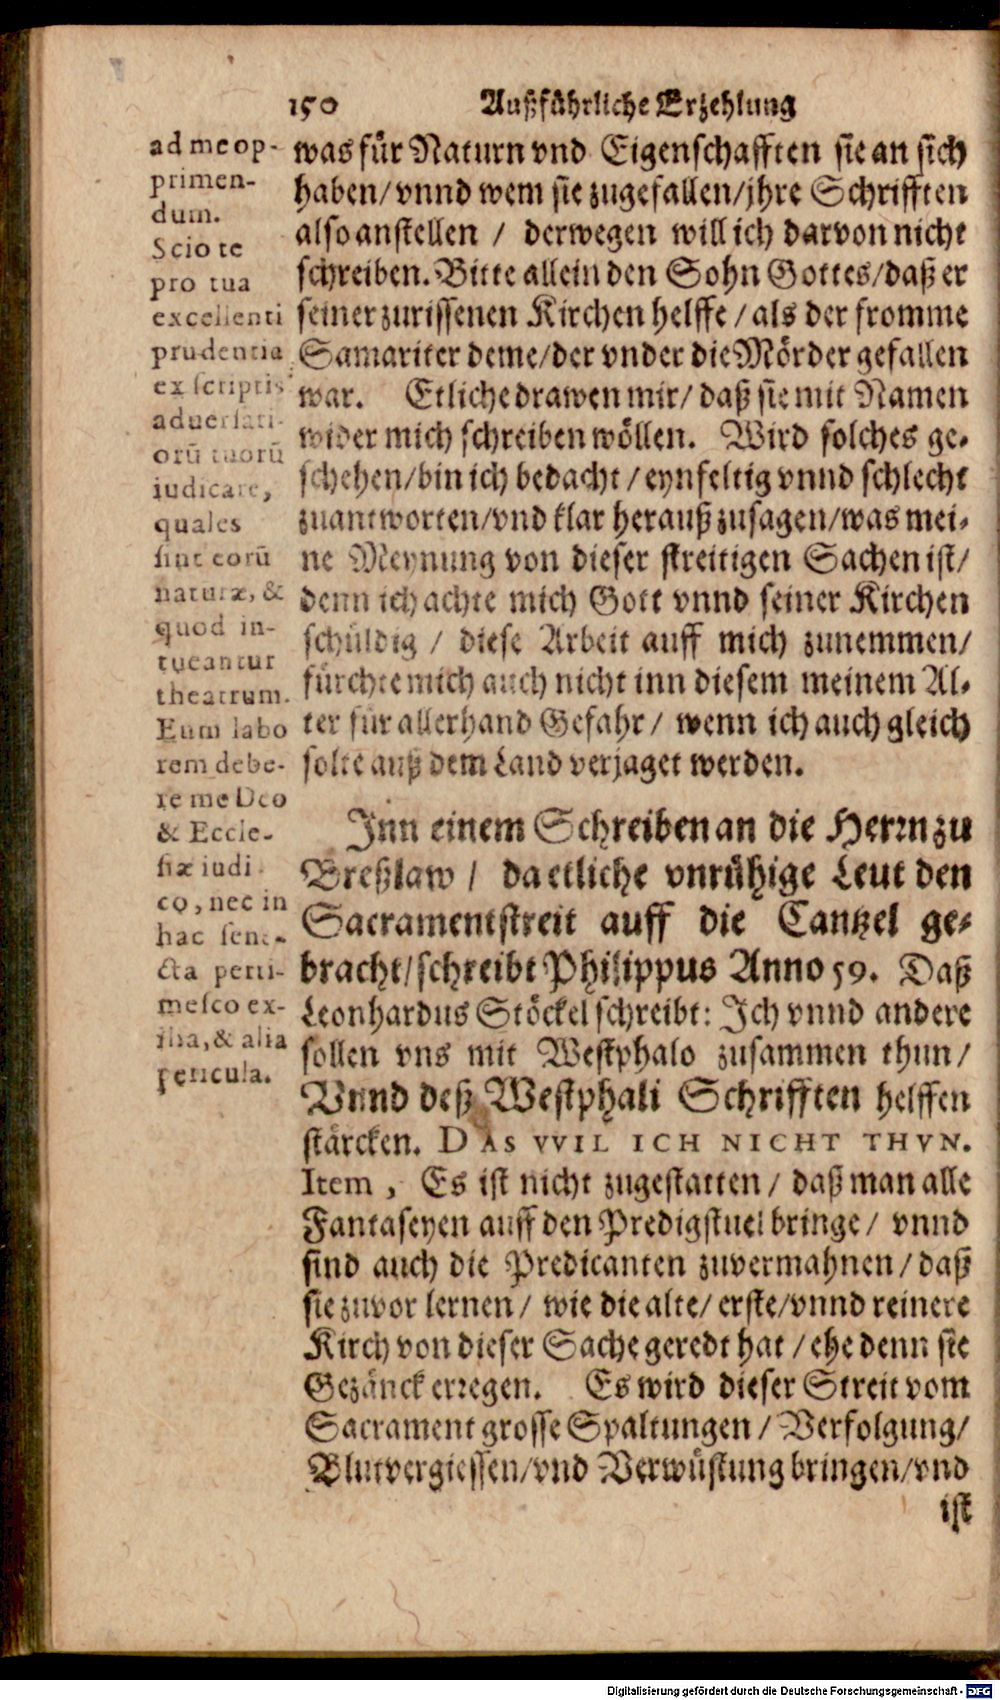 150 Außführliche Erzehlung
ad me op-
primen-
dum.
Scio te
pro tua
excellenti
prudentia
ex scriptis
aduersari-
orū tuorū
iudicare,
quales
sint eorū
naturæ, &
quod in-
tueantur
theatrum.
Eum labo
rem debe-
re me Deo
& Eccle-
siæ iudi
co, nec in
hac sene-
cta perti-
mesco ex-
ilia, & alia
pericula.
was für Naturn vnd Eigenschafften sie an sich
haben/ vnnd wem sie zugefallen/ jhre Schrifften
also anstellen / derwegen will ich darvon nicht
schreiben. Bitte allein den Sohn Gottes/ daß er
seiner zurissenen Kirchen helffe / als der fromme
Samariter deme/ der vnder die Mörder gefallen
war. Etliche drawen mir/ daß sie mit Namen
wider mich schreiben wöllen. Wird solches ge-
schehen/ bin ich bedacht / eynfeltig vnnd schlecht
zuantworten/ vnd klar herauß zusagen/ was mei-
ne Meynung von dieser streitigen Sachen ist/
denn ich achte mich Gott vnnd seiner Kirchen
schüldig / diese Arbeit auff mich zunemmen/
fürchte mich auch nicht inn diesem meinem Al-
ter für allerhand Gefahr / wenn ich auch gleich
solte auß dem Land verjaget werden.
Jnn einem Schreiben an die Herrn zu
Breßlaw / da etliche vnrühige Leut den
Sacramentstreit auff die Cantzel ge-
bracht/ schreibt Philippus Anno 59. Daß
Leonhardus Stöckel schreibt: Jch vnnd andere
sollen vns mit Westphalo zusammen thun/
Vnnd deß Westphali Schrifften helffen
stärcken. DAS VVIL ICH NICHT THVN.
Item , Es ist nicht zugestatten / daß man alle
Fantaseyen auff den Predigstuel bringe / vnnd
sind auch die Predicanten zuvermahnen / daß
sie zuvor lernen / wie die alte/ erste/ vnnd reinere
Kirch von dieser Sache geredt hat / ehe denn sie
Gezänck erregen. Es wird dieser Streit vom
Sacrament grosse Spaltungen / Verfolgung/
Blutvergiessen/ vnd Verwüstung bringen/ vnd
ist
Digitalisierung gefördert durch die Deutsche Forschungsgemeinschaft - DFG